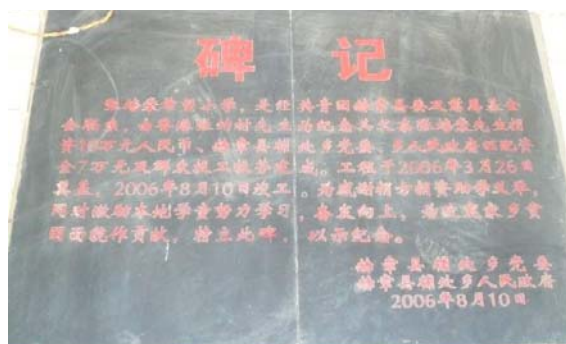 碑记
希望小学，是经共青团赫章县委及慈恩基金
会联系，由香港张 先生为纪念其父亲张 先生捐
资18万元人民币、赫章县辅处乡党委、乡人民政府匹配资
金7万元及群众投工投劳建成。工程于2006年3月26日
奠基，2006年8月10日竣工。为感谢捐方捐资助学义举，
同时激励本地学童努力学习，奋发向上，为改变家乡贫
困面貌作贡献，特立此碑，以示纪念。
赫章县辅处乡党委
赫章县辅处乡人民政府
2006年8月10日